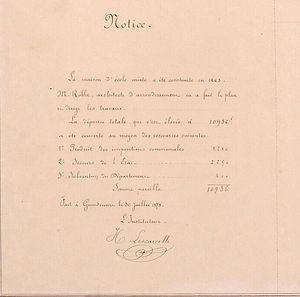 Notice.
La maison d'école mixte a été construite en 1863.
M. Roble, architecte d'arrondissement en a fait le plan
et dirigé les travaux.
La dépense totale qui s'est élevée à 10936f
a été couverte au moyen des ressources suivantes:
1° Produit des impositions communales 8286
2° Secours de l'Etat 2250
3° Subvention du Département 400
Somme pareille 10936
Fait à le 30 Juillet 1878.
L'Instituteur
H. Lescarcelle